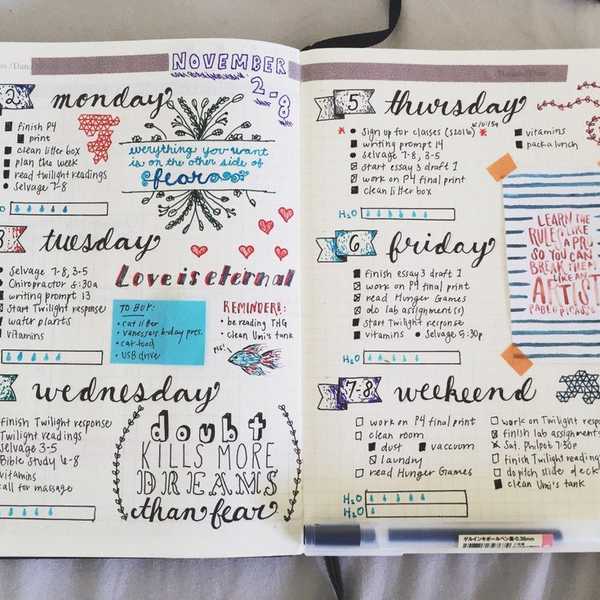 NOVEMBER
2-8
2 monday
finish P4
print
clean litter box
plan the week
read twilight readings
Selvage 7-8
H2O
everything you want
is on the other side of
fear
tuesday
Selvage 7-8, 3-5
Chiropractor 6:30a
writing prompt 13
Start Twilight response
water plants
vitamins
Love is eternal
TO BUY:
cat litter
vanessa's bday pres.
cat food
USB drive
REMINDER:
be reading THG
clean Umi's tank
wednesday
finish Twilight response
Twilight readings
Selvage 3-5
Bible study 6-8
vitamins
call for massage
doubt
KILLS MORE
DREAMS
than fear
5 thursday
sign up for classes (S2016)
writing prompt 14
Selvage 7-8, 3-5
start essay 3 draft 1
work on P4 final print
clean litter box
vitamins
pack a lunch
H2O
6 friday
finish essay 3 draft 1
work on P4 final print
read Hunger Games
do lab assignment(s)
start Twilight response
vitamins
Selvage 5:30p
H2O
LEARN THE
RULES LIKE
A PRO
SO YOU CAN
BREAK THEM
LIKE AN
ARTIST
PABLO PICASSO
7-8 weekend
work on P4 final print
clean room
dust
vaccuum
laundry
read Hunger Games
work on Twilight respon
finish lab assignment
Sat. Philpot 7:30p
finish Twilight reading
do pitch slide deck
clean Umi's tank
H2O
H2O
ゲルインキボールペン 0.38mm